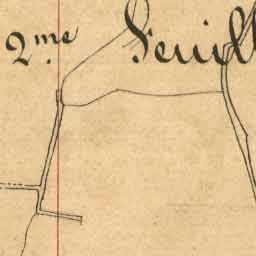 2.me Feuill